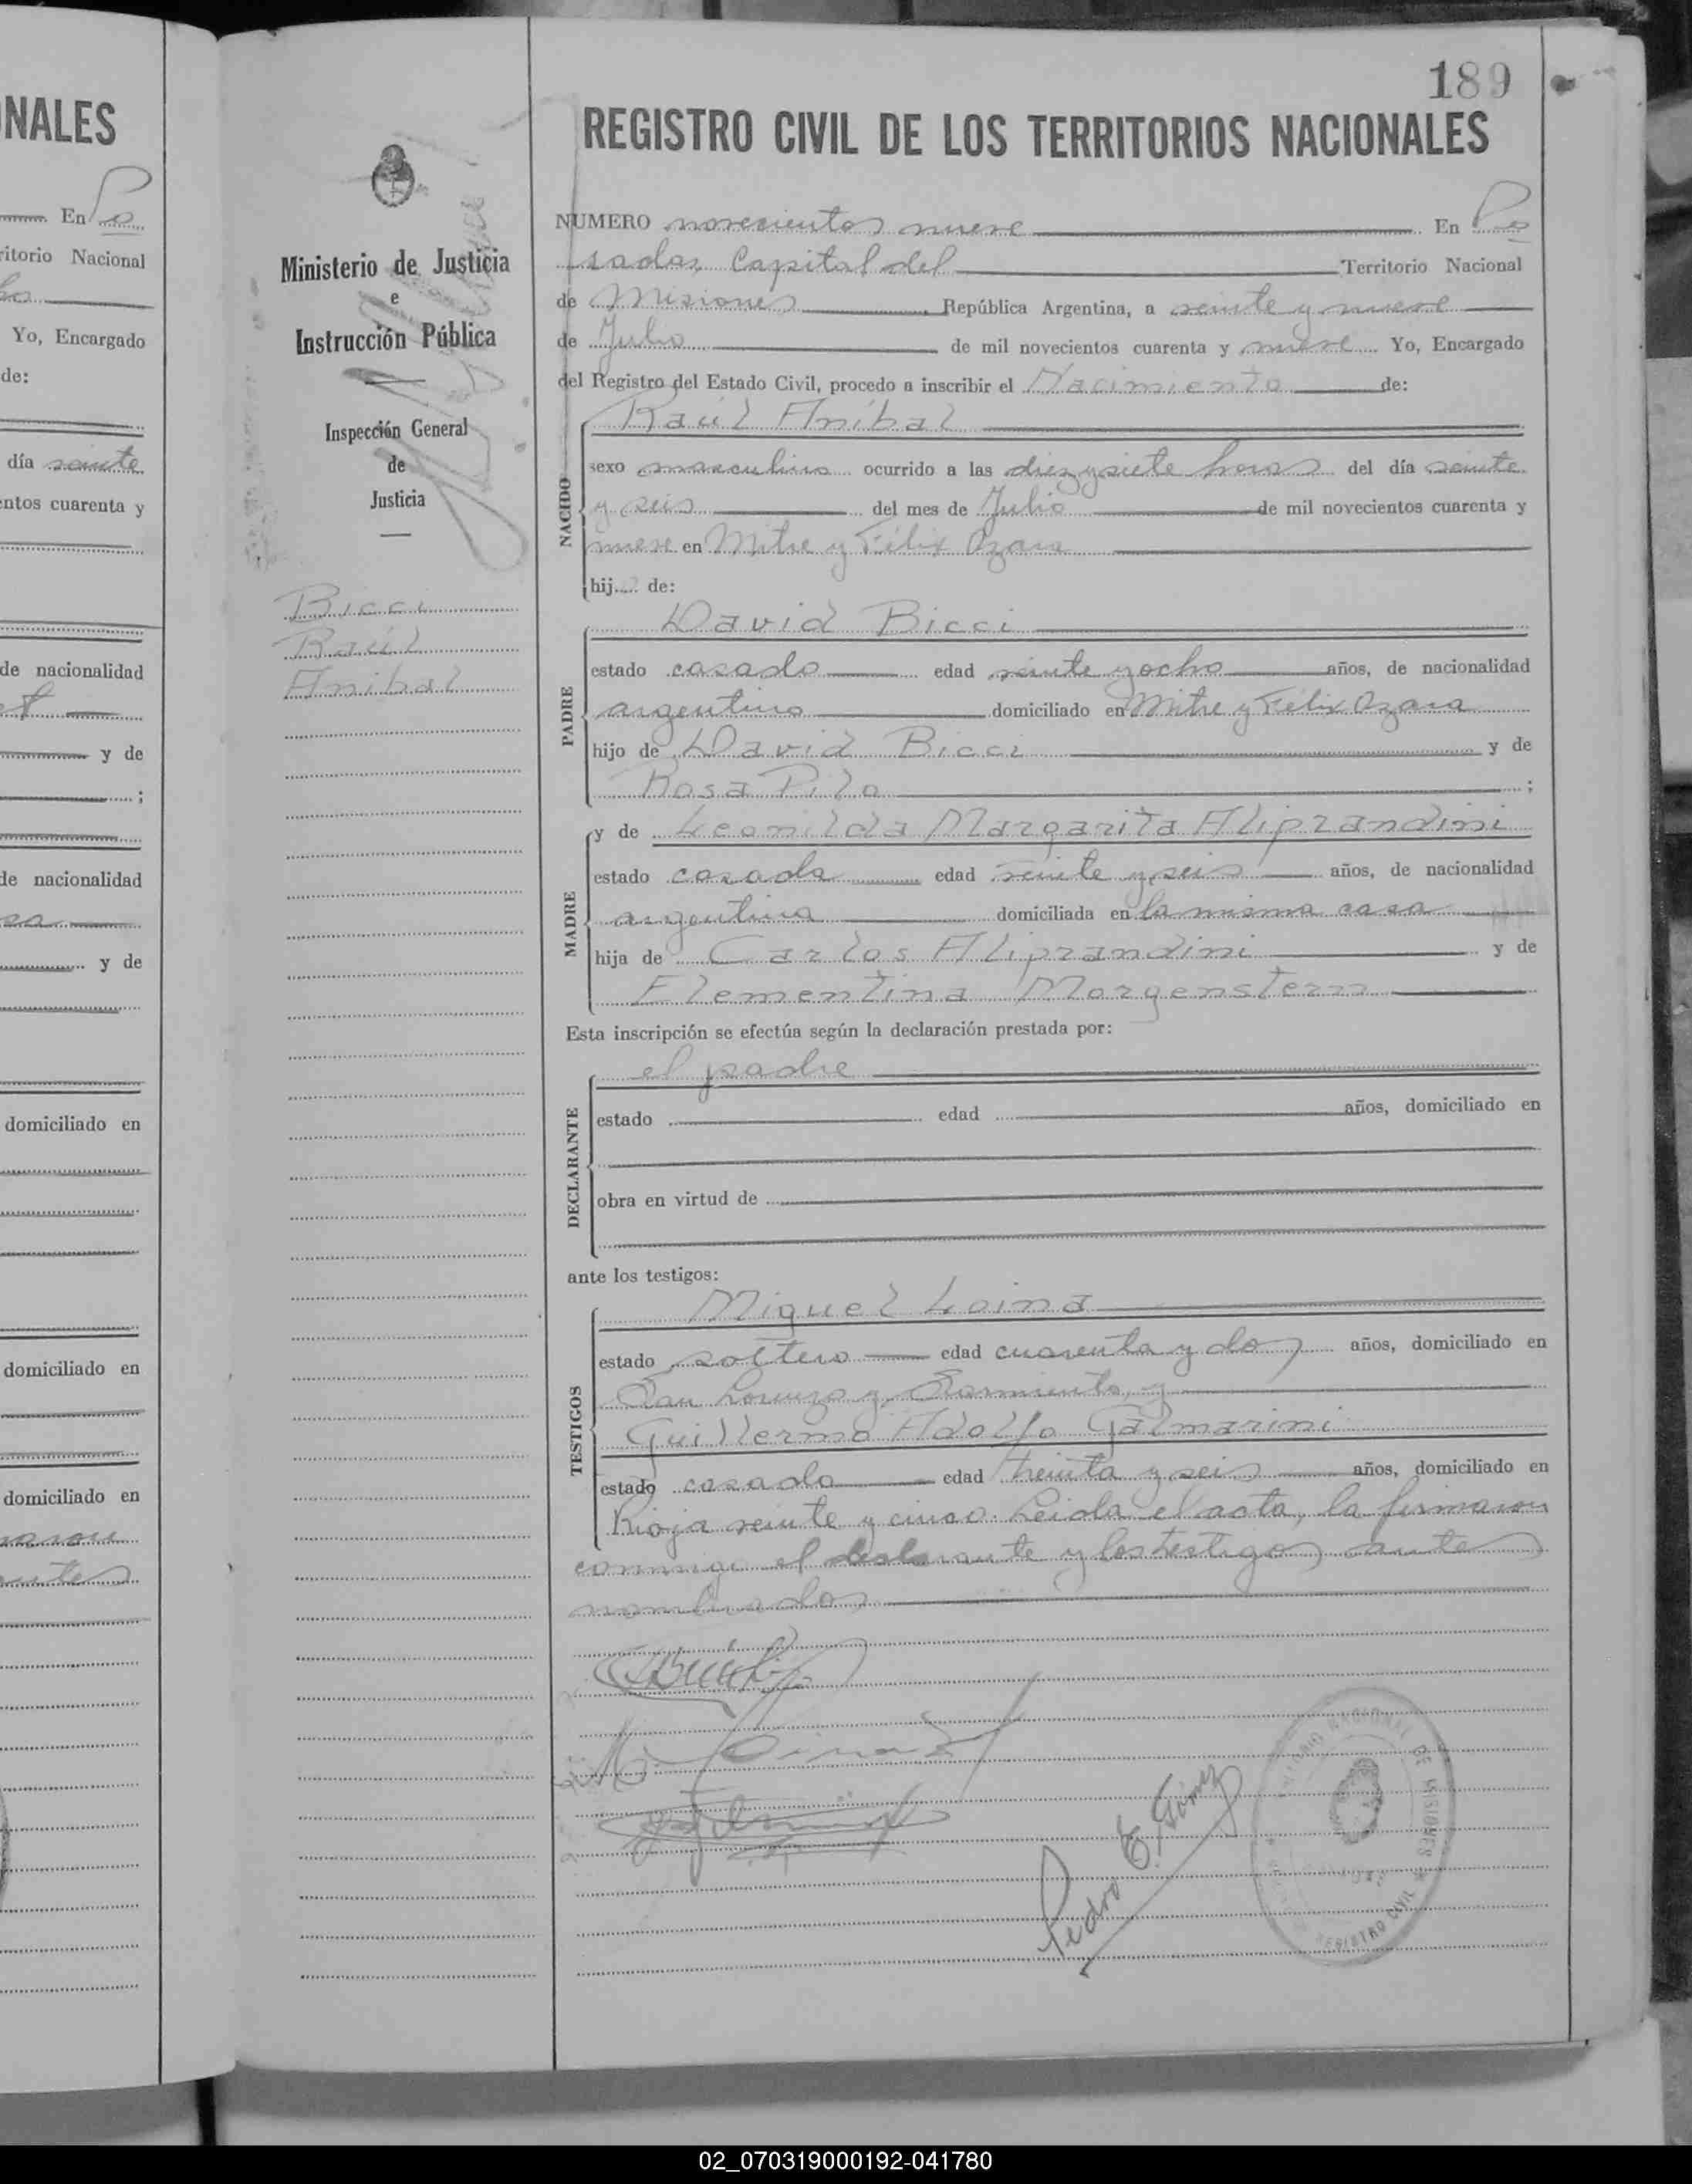 NALES
En Po
ritorio Nacional
Yo, Encargado
de:
día veinte
entos cuarenta y
de nacionalidad
y de
;
de nacionalidad
y de
domiciliado en
domiciliado en
domiciliado en
Ministerio de Justicia
e
Instrucción Pública
Inspección General
de
Justicia
Bicci
Raúl
Anibal
189
REGISTRO CIVIL DE LOS TERRITORIOS NACIONALES
NUMERO novecientos nueve En Po
sadas, Capital del Territorio Nacional
de Misiones República Argentina, a veinte y nueve
de Julio de mil novecientos cuarenta y nueve Yo, Encargado
del Registro del Estado Civil, procedo a inscribir el Nacimiento de:
NACIDO
Raúl Aníbal
sexo masculino ocurrido a las diez y siete horas del día veinte
y seis del mes de Julio de mil novecientos cuarenta y
nueve en Mitre y Félix Azara
hij de:
PADRE
David Bicci
estado casado edad veinte y ocho años, de nacionalidad
argentino domiciliado en Mitre y Félix Azara
hijo de David Bicci y de
Rosa Pilo ;
MADRE
y de Leonilda Margarita Aliprandini
estado casada edad veinte y seis años, de nacionalidad
argentina domiciliada en la misma casa
hija de Carlos Aliprandini y de
Elementina Morgenstern
Esta inscripción se efectúa según la declaración prestada por:
DECLARANTE
el padre
estado edad años, domiciliado en
obra en virtud de
ante los testigos:
TESTIGOS
Miguel Loina
estado soltero edad cuarenta y dos años, domiciliado en
San Lorenzo y Sarmiento, y
Guillermo Adolfo Galmarini
estado casado edad treinta y seis años, domiciliado en
Rioja veinte y cinco. Leida el acta, la firmaron
conmigo el declarante y los testigos antes
nombrados
Pedro E. Gómez
NACIONAL DE MISIONES
REGISTRO CIVIL
02_070319000192-041780